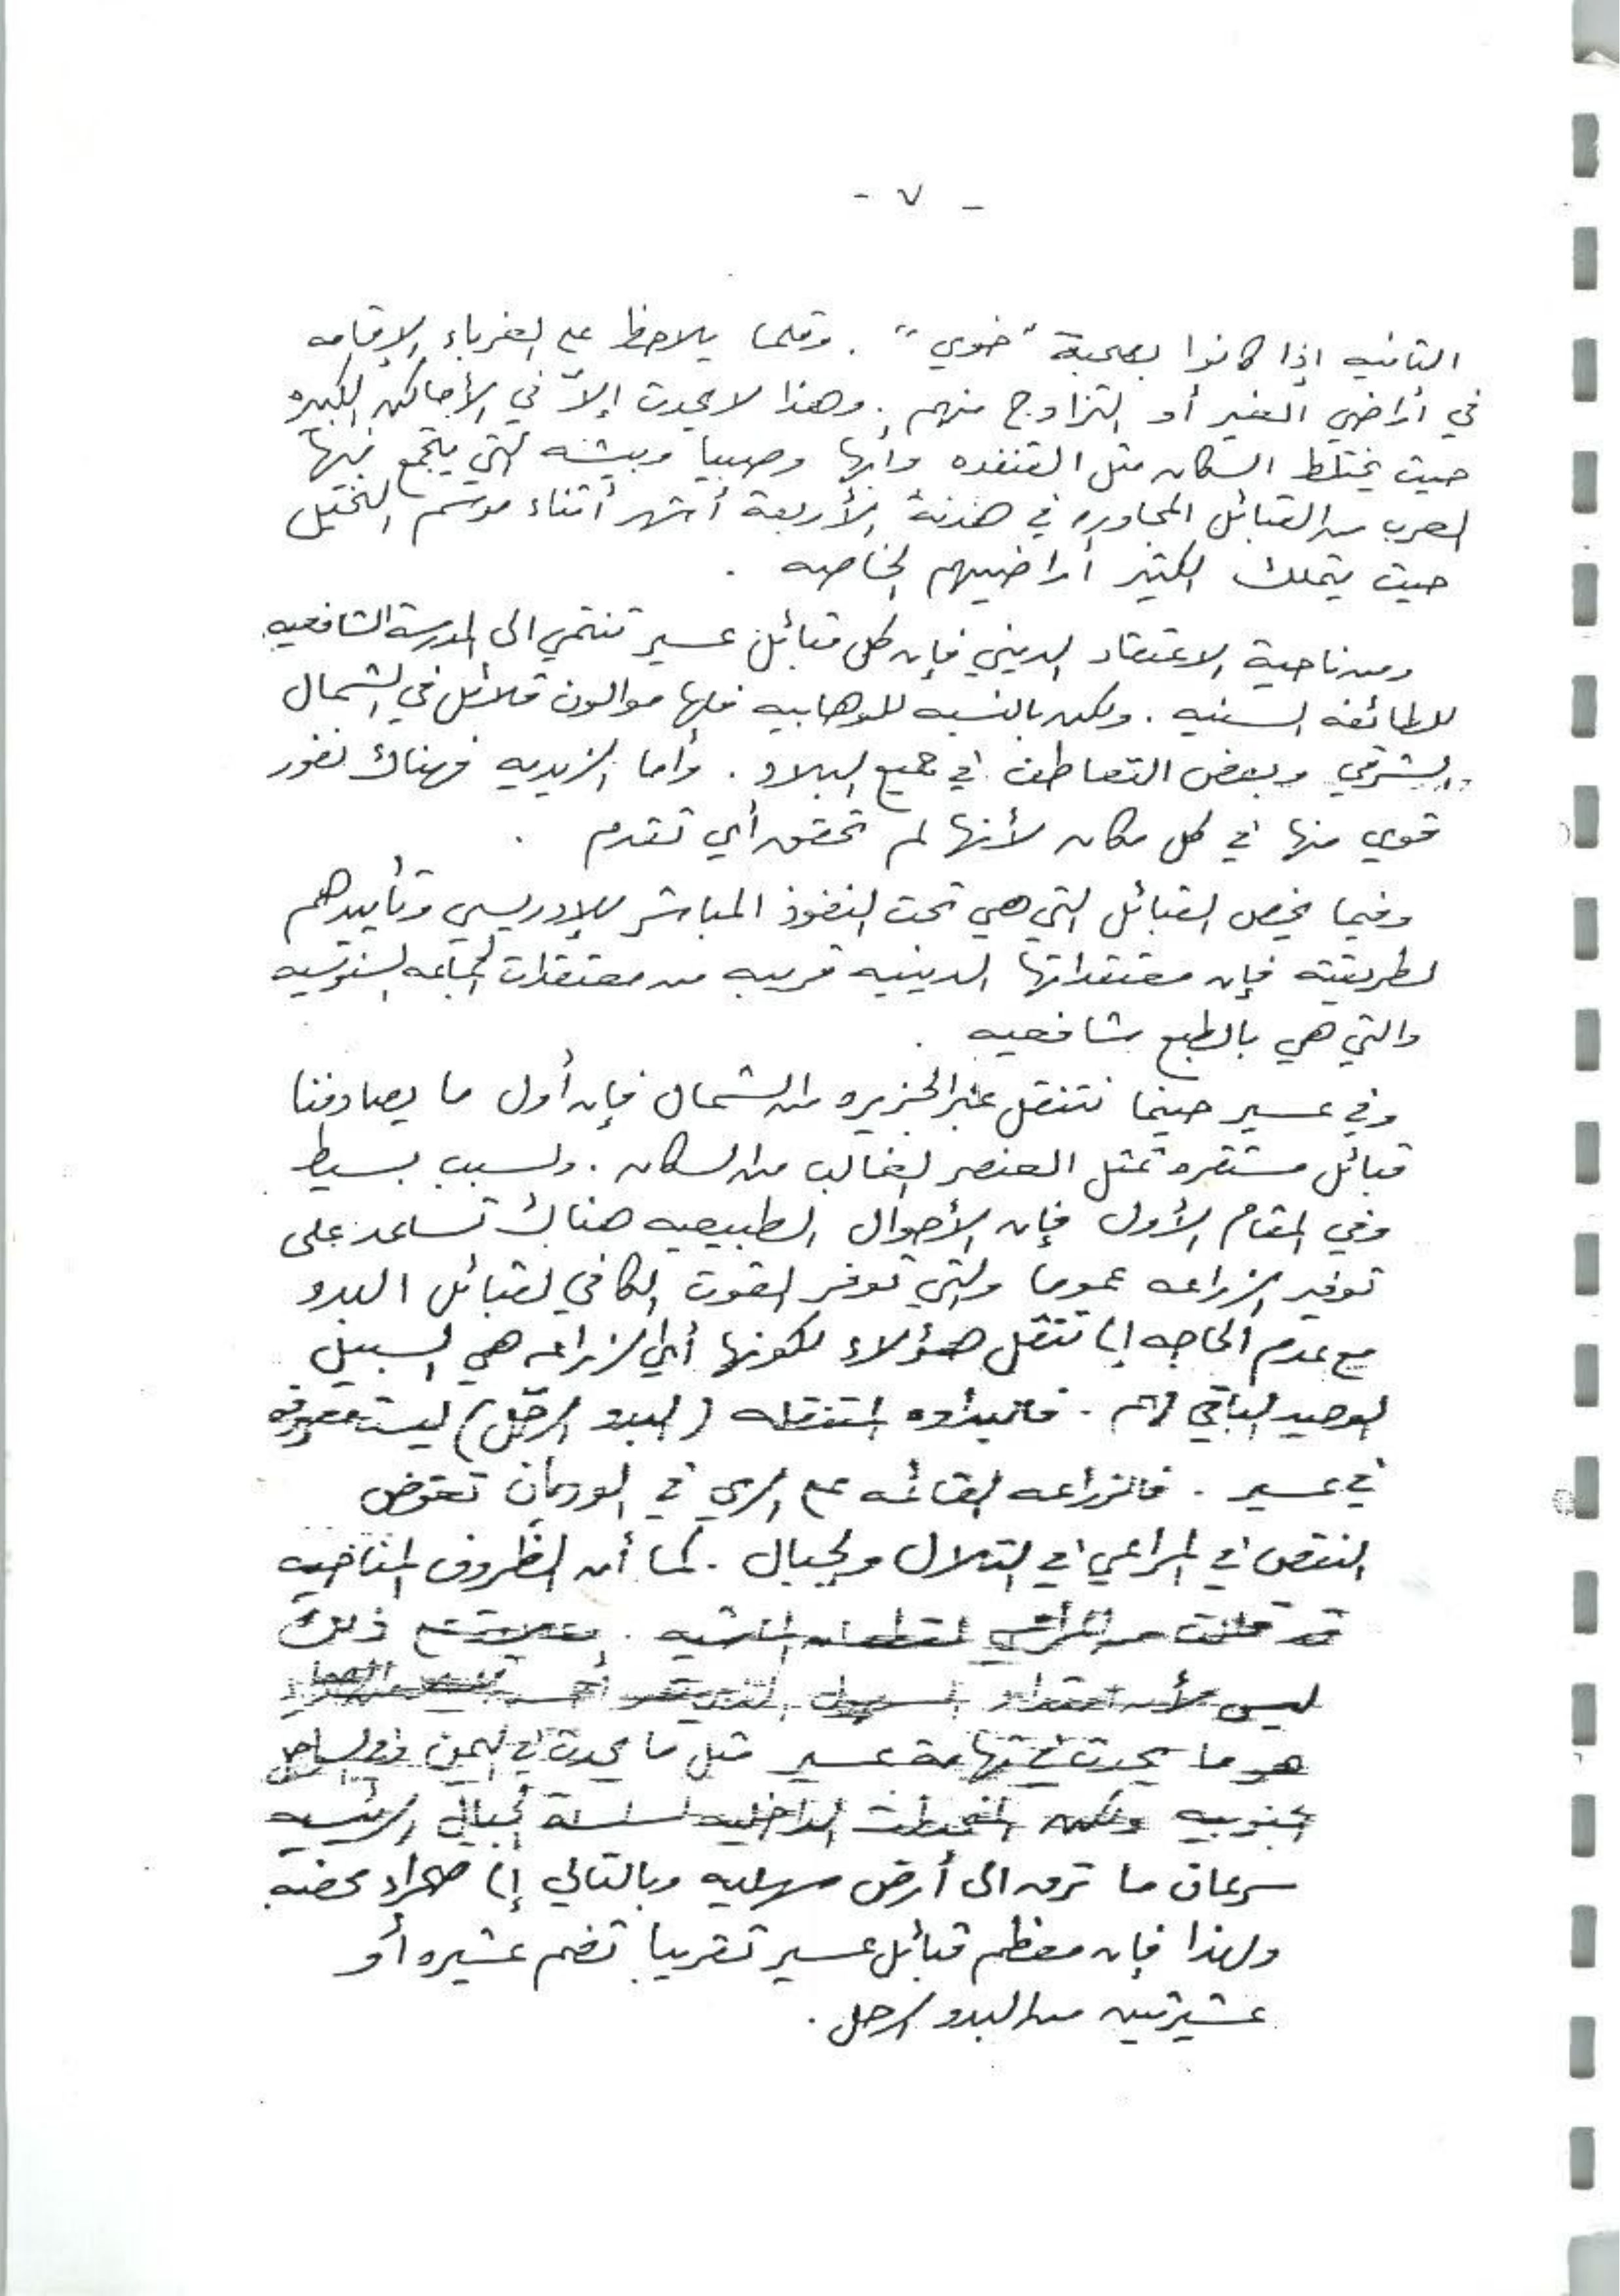 - ٧ -
الثانيه إذا كانوا بصحبة "خوي" . وقلما يلاحظ على الغرباء الإقامه
في أراضي الغير أو التزاوج منهم . وهذا لا يحدث إلاّ في الأماكن الكبيره
حيث يختلط السكان مثل القنفده وأبها وصبيا وبيشه التي يتجمع فيها
العرب من القبائل المجاوره في هدنة الأربعة أشهر أثناء موسم النخيل
حيث يتملك الكثير أراضيهم الخاصه .
ومن ناحية الاعتقاد الديني فإن كل قبائل عسير تنتمي الى المدرسة الشافعيه
للطائفه السنيه . ولكن بالنسبه للوهابيه فلها موالون قلائل في الشمال
الشرقي وبعض التعاطف في جميع البلاد . وأما الزيديه فهناك نفور
قوي منها في كل مكان لأنها لم تحقق أي تقدم .
وفيما يخص القبائل التي هي تحت النفوذ المباشر للإدريسي وتأييدهم
لطريقته فإن معتقداتها الدينيه قريبه من معتقدات الجماعه السنوسيه
والتي هي بالطبع شافعيه .
وفي عسير حينما نتنقل عبر الجزيره من الشمال فإن أول ما يصادفنا
قبائل مستقره تمثل العنصر الغالب من السكان . ولسبب بسيط
وفي المقام الأول فإن الأحوال الطبيعيه هناك تساعد على
توفير الزراعه عموما والتي توفر القوت الكافي لقبائل البدو
مع عدم الحاجه إلى تنقل هؤلاء لكونها أي الزراعه هي السبيل
الوحيد الباقي لهم . فالبداوه المتنقله (البدو الرحّل) ليست معروفه
في عسير . فالزراعه القائمه على الري في الوديان تعوض
النقص في المراعي في التلال والجبال . كما أن الظروف المناخيه
قد قللت من المراعي لقطعان الماشيه . ذلك
ليس لأن امتداد السهول
هو ما يحدث في تهامة عسير مثل ما يحدث في اليمن وفي الساحل
الجنوبيه ولكن المنحدرات الداخليه لسلسلة الجبال الرئيسيه
سرعان ما تؤدي الى أرض سهليه وبالتالي إلى صحراء محضه
ولهذا فإن معظم قبائل عسير تقريبا تضم عشيره أو
عشيرتين من البدو الرحل .